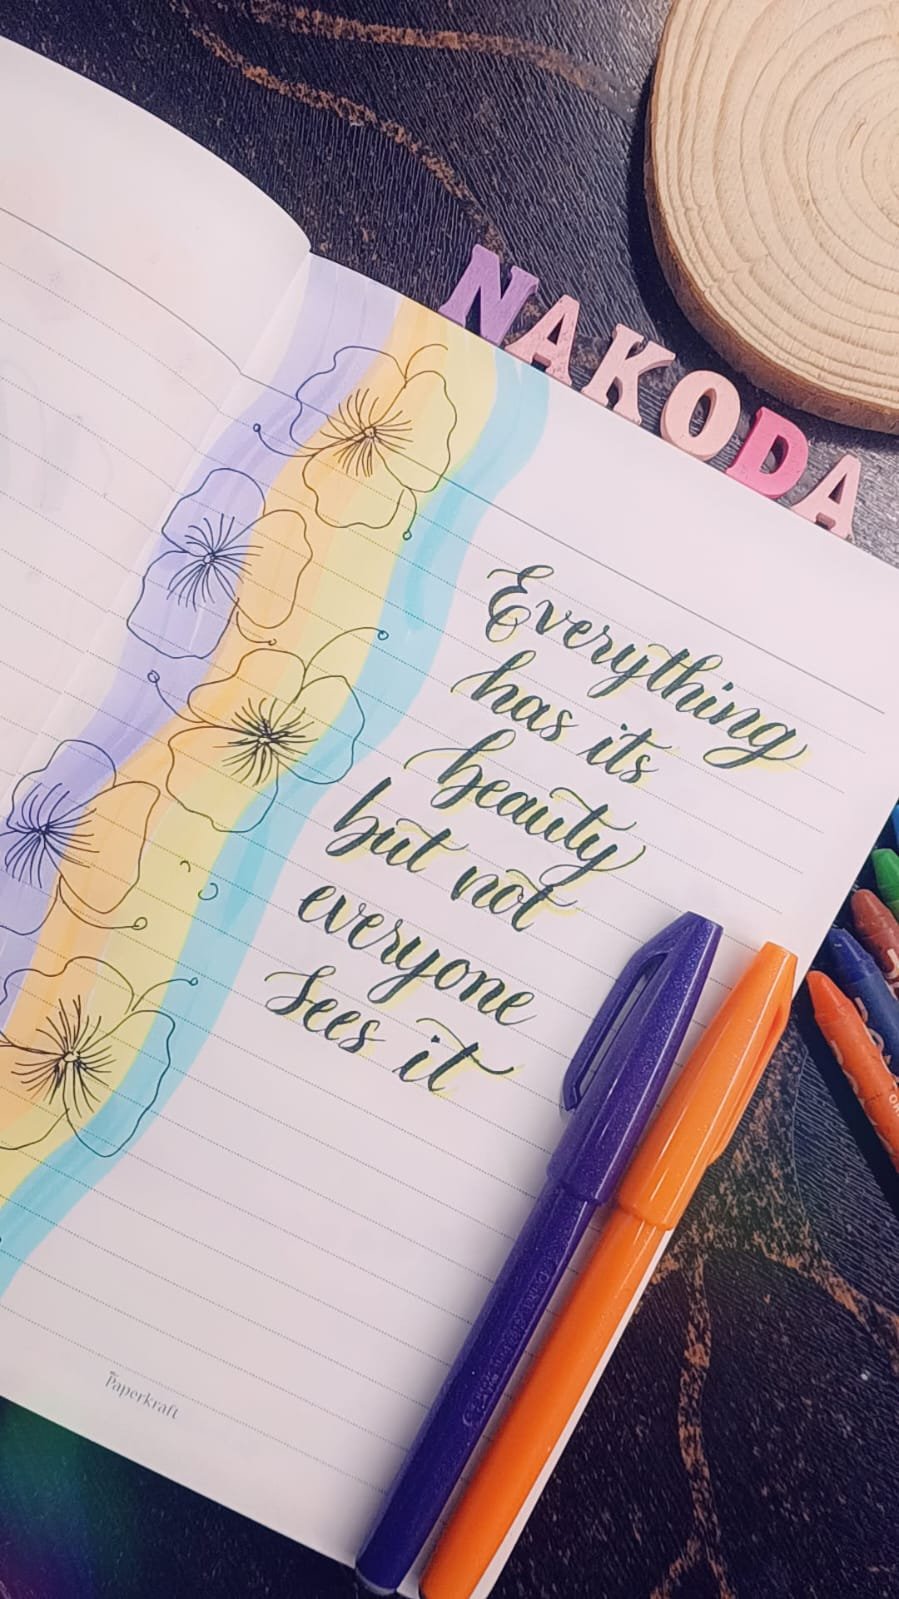 NAKODA
Everything
has its
beauty
but not
everyone
sees it
Paperkraft